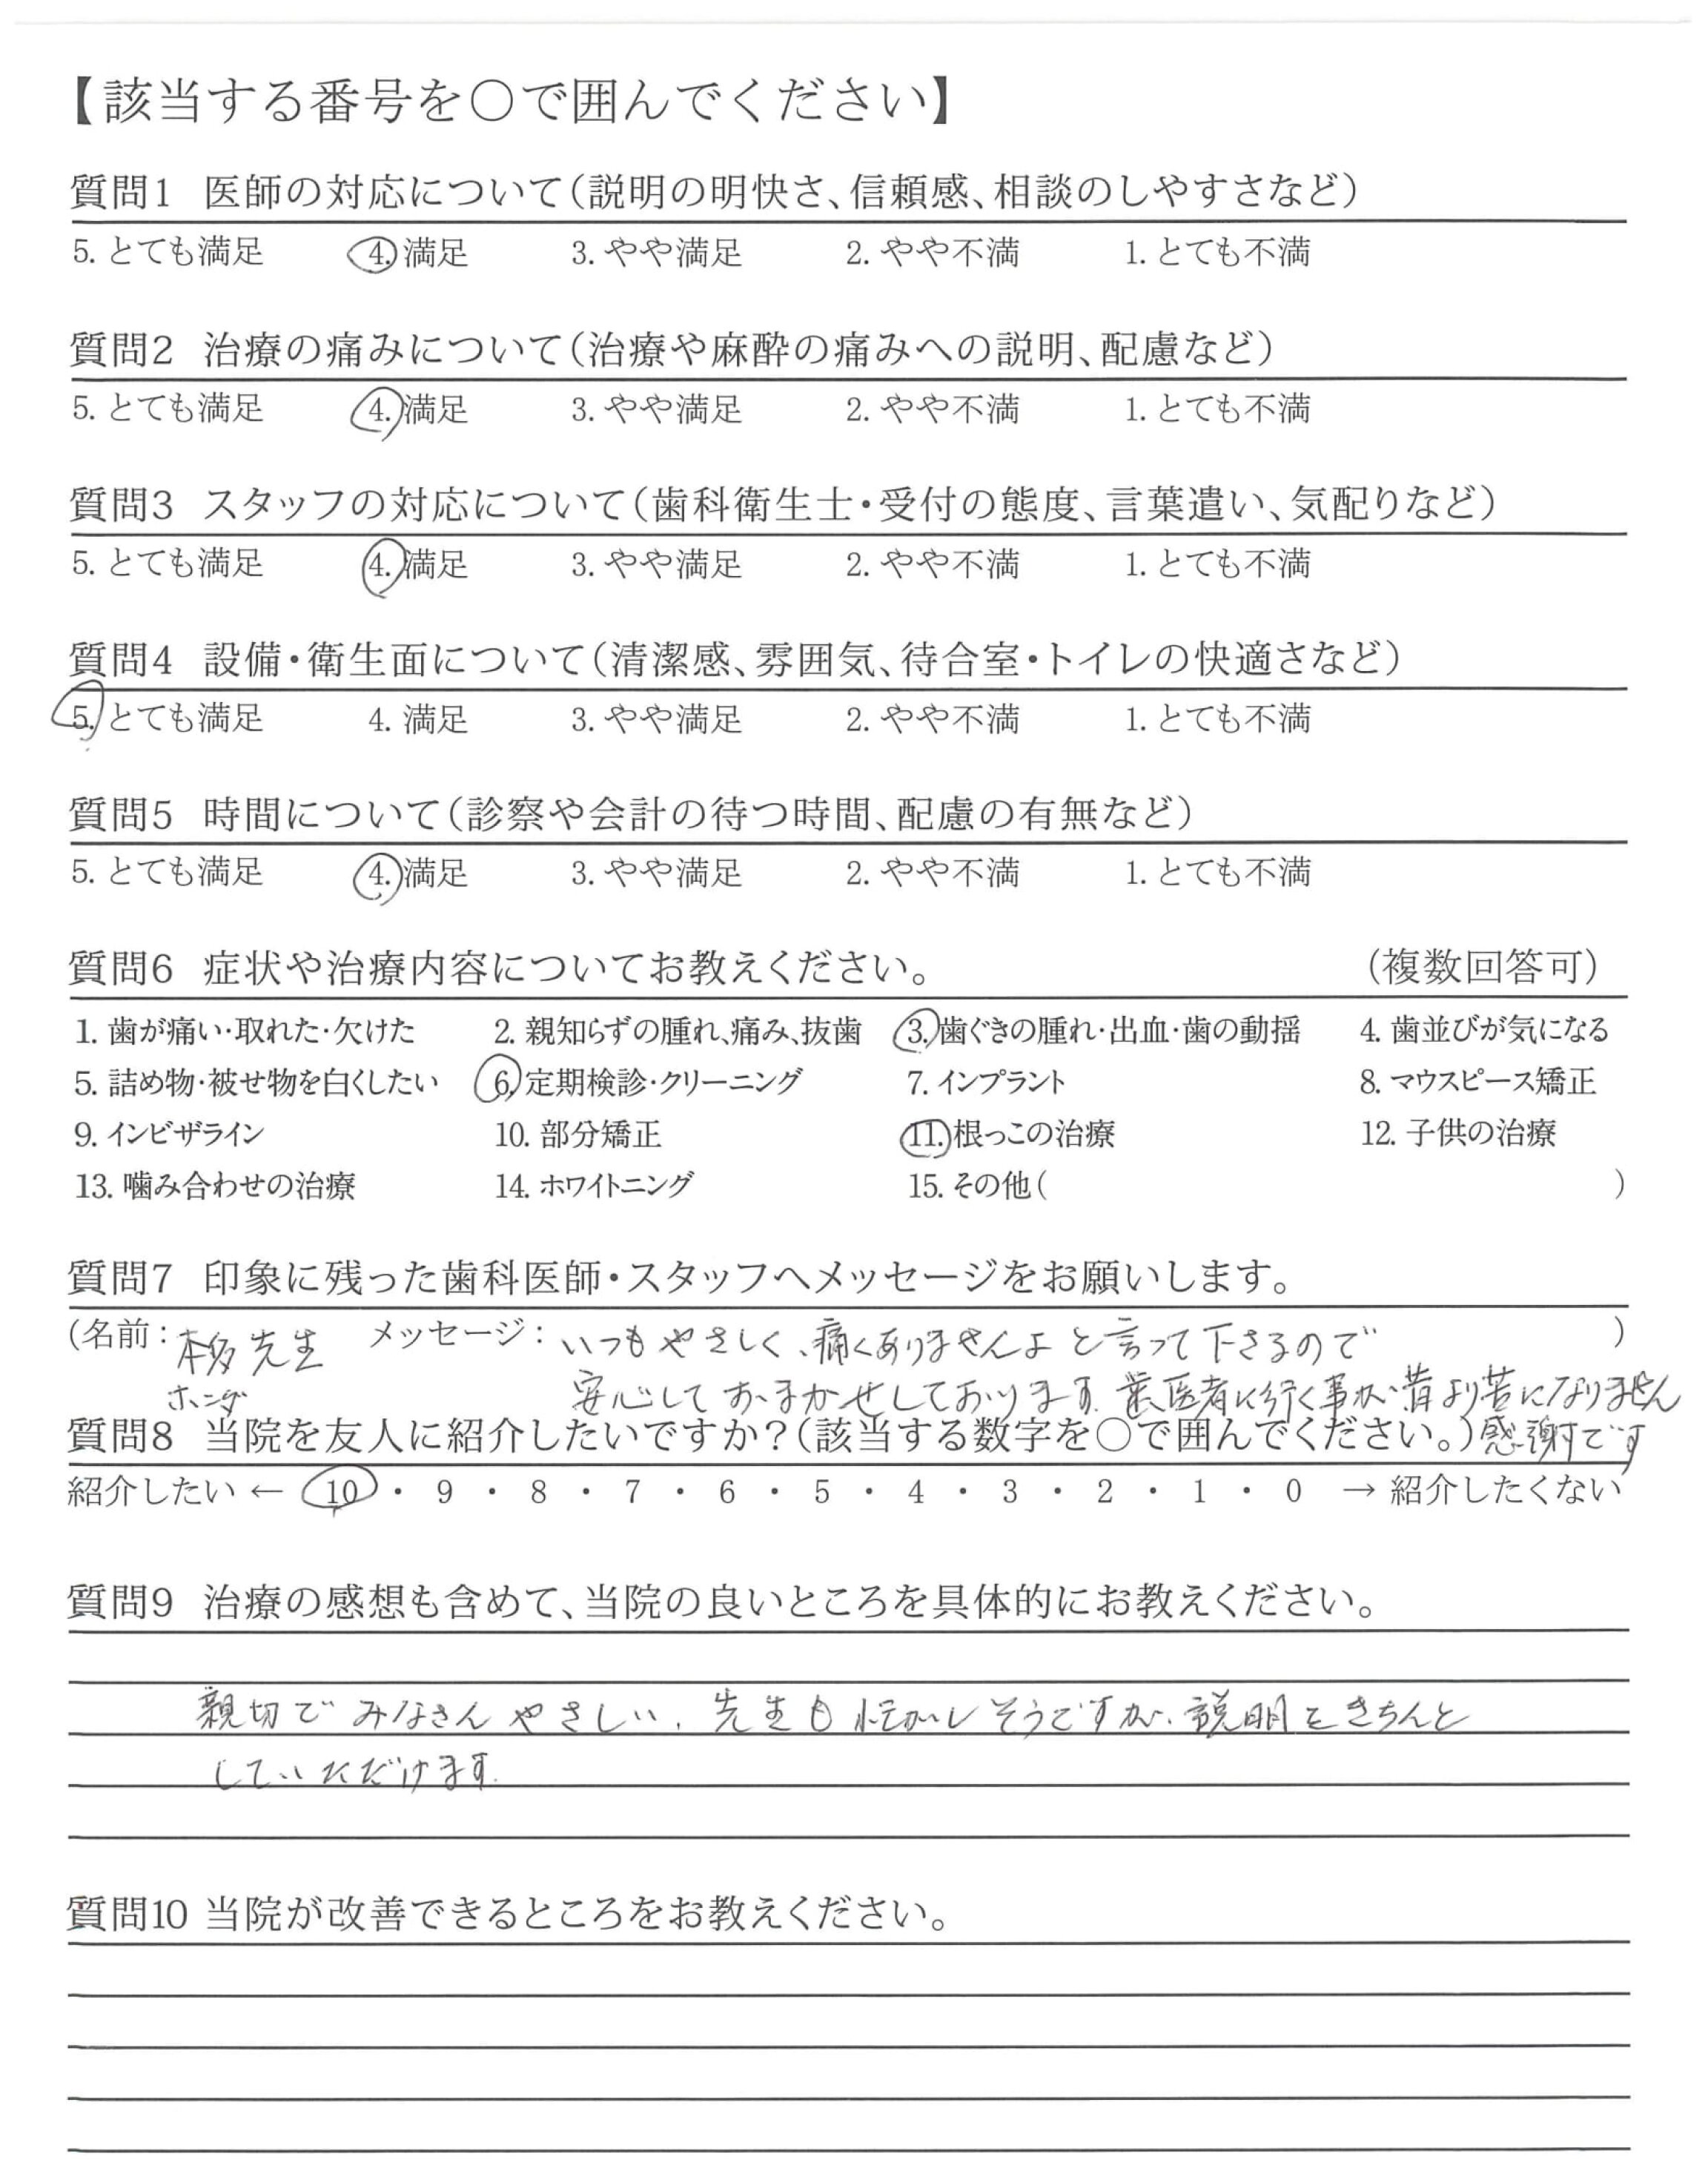 【該当する番号を○で囲んでください】
質問1 医師の対応について(説明の明快さ、信頼感、相談のしやすさなど)
5. とても満足 4. 満足 3. やや満足 2. やや不満 1. とても不満
質問2 治療の痛みについて(治療や麻酔の痛みへの説明、配慮など)
5. とても満足 4. 満足 3. やや満足 2. やや不満 1. とても不満
質問3 スタッフの対応について(歯科衛生士・受付の態度、言葉遣い、気配りなど)
5. とても満足 4. 満足 3. やや満足 2. やや不満 1. とても不満
質問4 設備・衛生面について(清潔感、雰囲気、待合室・トイレの快適さなど)
5. とても満足 4. 満足 3. やや満足 2. やや不満 1. とても不満
質問5 時間について(診察や会計の待つ時間、配慮の有無など)
5. とても満足 4. 満足 3. やや満足 2. やや不満 1. とても不満
質問6 症状や治療内容についてお教えください。 (複数回答可)
1. 歯が痛い・取れた・欠けた 2. 親知らずの腫れ、痛み、抜歯 3. 歯ぐきの腫れ・出血・歯の動揺 4. 歯並びが気になる
5. 詰め物・被せ物を白くしたい 6. 定期検診・クリーニング 7. インプラント 8. マウスピース矯正
9. インビザライン 10. 部分矯正 11. 根っこの治療 12. 子供の治療
13. 噛み合わせの治療 14. ホワイトニング 15. その他( )
質問7 印象に残った歯科医師・スタッフへメッセージをお願いします。
(名前: 本多先生 メッセージ: いつもやさしく、痛くありませんよと言って下さるので )
ホンダ 安心しておまかせしております。歯医者に行く事が、昔より苦になりません
質問8 当院を友人に紹介したいですか?(該当する数字を○で囲んでください。) 感謝です
紹介したい ← 10 ・ 9 ・ 8 ・ 7 ・ 6 ・ 5 ・ 4 ・ 3 ・ 2 ・ 1 ・ 0 → 紹介したくない
質問9 治療の感想も含めて、当院の良いところを具体的にお教えください。
親切でみなさんやさしい、先生も忙がしそうですが、説明をきちんと
していただけます。
質問10 当院が改善できるところをお教えください。